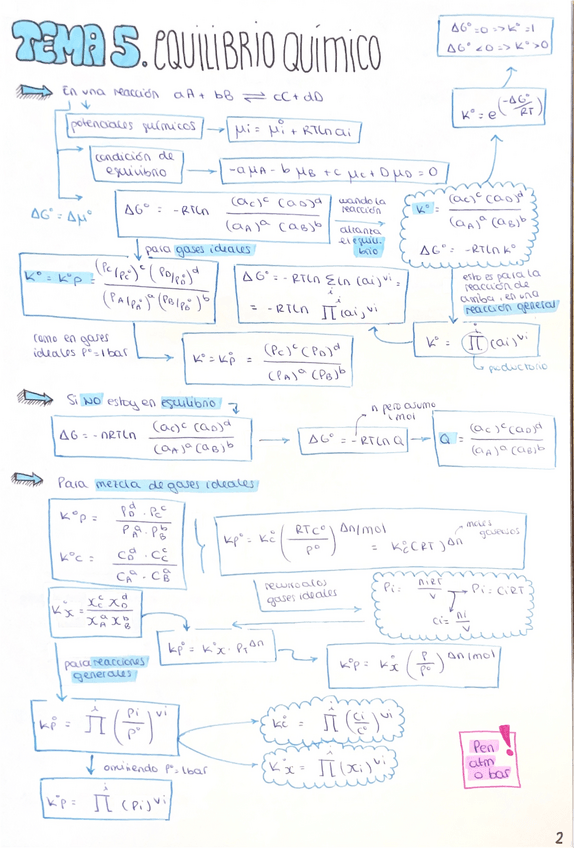 TEMA 5. EQUILIBRIO QUÍMICO
ΔG° = 0 => K° = 1
ΔG° < 0 => K° > 0
En una reacción aA + bB ⇌ cC + dD
K° = e^(-ΔG°/RT)
potenciales químicos → μi = μi° + RTLn ai
condición de equilibrio → -aμA - bμB + cμC + DμD = 0
ΔG° = Δμ°
ΔG° = -RTLn (aC)^c (aD)^d / (aA)^a (aB)^b
cuando la
reacción
alcanza
el equili-
brio
K° = (aC)^c (aD)^d / (aA)^a (aB)^b
ΔG° = -RTLn K°
para gases ideales
K° = K°p = (Pc/Pc°)^c (PD/PD°)^d / (PA/PA°)^a (PB/PB°)^b
ΔG° = -RTLn Σ Ln (ai)^νi =
= -RTLn ∏^i (ai)^νi
esto es para la
reacción de
arriba, en una
reacción general
K° = ∏^i (ai)^νi
productorio
como en gases
ideales P° = 1 bar
K° = K°p = (Pc)^c (PD)^d / (PA)^a (PB)^b
Si NO estoy en equilibrio
n pero asumo
1 mol
ΔG = -nRTLn (aC)^c (aD)^d / (aA)^a (aB)^b
ΔG° = -RTLn Q
Q = (aC)^c (aD)^d / (aA)^a (aB)^b
Para mezcla de gases ideales
K°p = PD^d · PC^c / PA^a · PB^b
K°c = CD^d · CC^c / CA^a · CB^b
Kp° = Kc° (RTc°/P°)^Δn/mol = Kc° (RT)^Δn
moles
gaseosos
recurro a los
gases ideales
Pi = niRT/V → Pi = ciRT
ci = ni/V
K°x = xC^c xD^d / xA^a xB^b
Kp° = K°x · PT^Δn
K°p = K°x (P/P°)^Δn/mol
para reacciones
generales
Kp° = ∏^i (Pi/P°)^νi
Kc° = ∏^i (ci/c°)^νi
K°x = ∏^i (xi)^νi
omitiendo P° = 1 bar
K°p = ∏^i (Pi)^νi
P en
atm
o bar
!
2